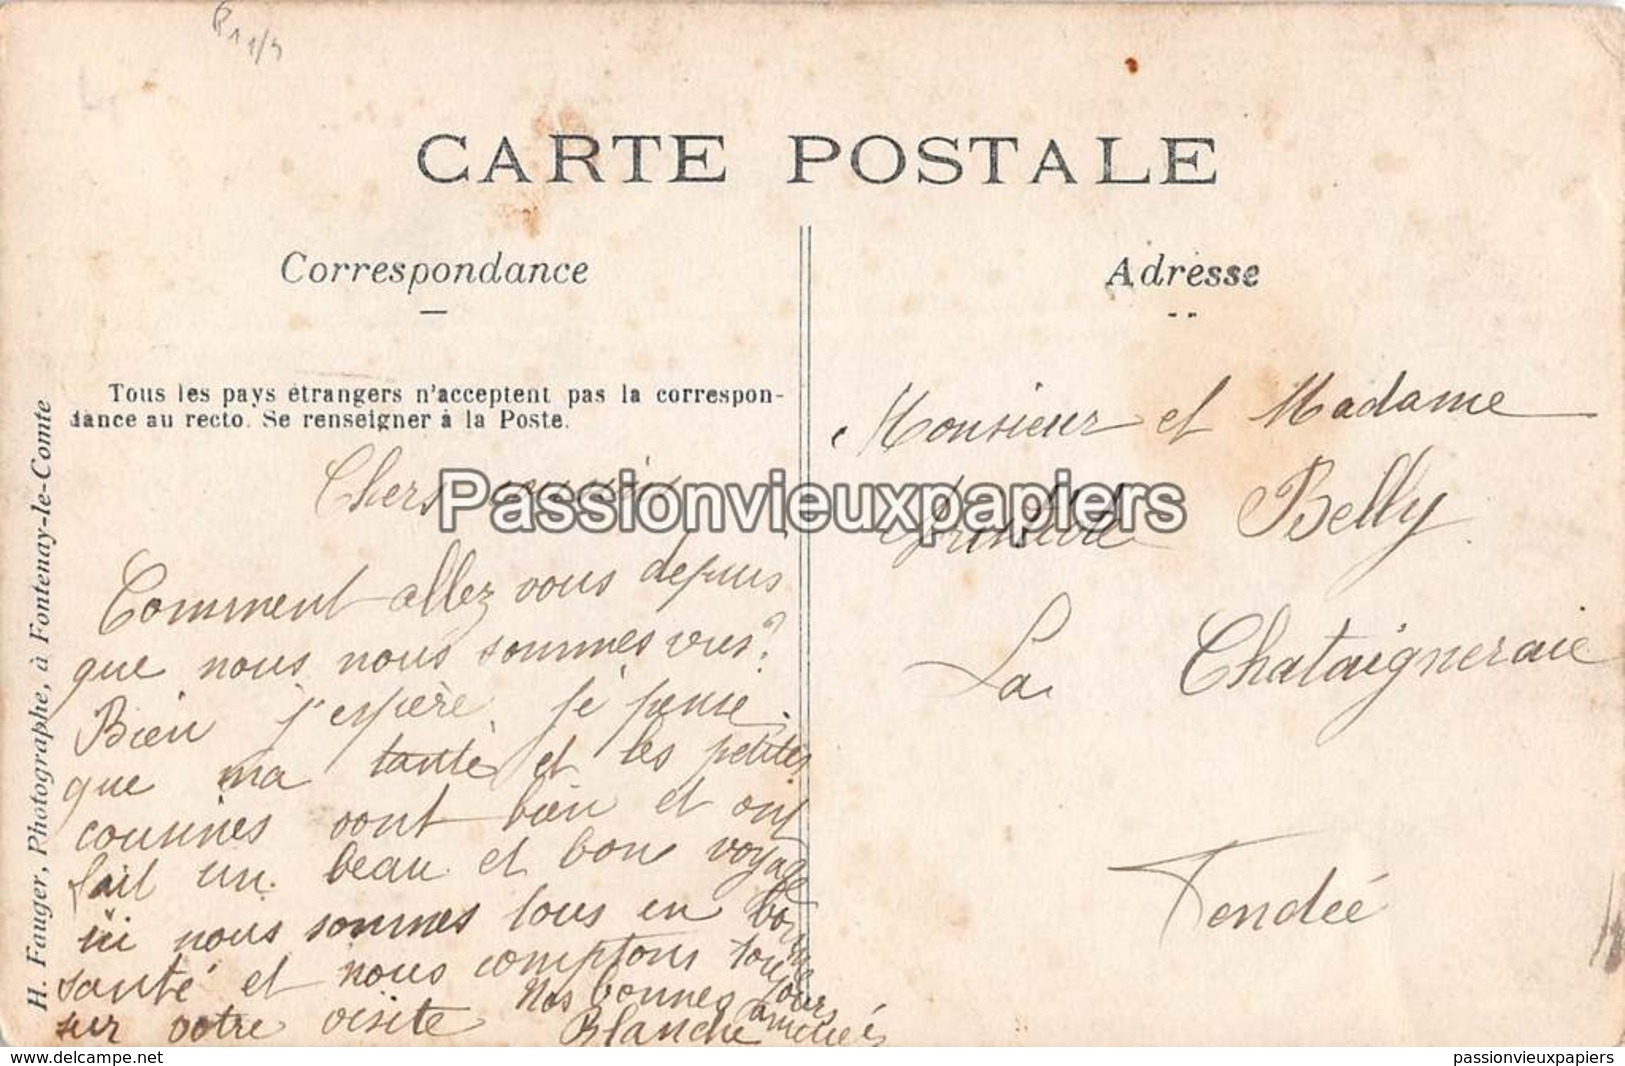 CARTE POSTALE
Correspondance
Adresse
Tous les pays étrangers n'acceptent pas la correspon-
dance au recto. Se renseigner à la Poste.
H. Fauger, Photographe, à Fontenay-le-Comte
Chers
Comment allez vous depuis
que nous nous sommes vus?
Bien j'espère. je pense
que ma tante et les petites
cousines vont bien et ont
fait un beau et bon voyage
ici nous sommes tous en bonne
santé et nous comptons toujours
sur votre visite
Nos bonnes amitiés
Blanche
Monsieur et Madame
Belly
La Chataigneraie
Vendée
Passionvieuxpapiers
passionvieuxpapiers
passionvieuxpapiers